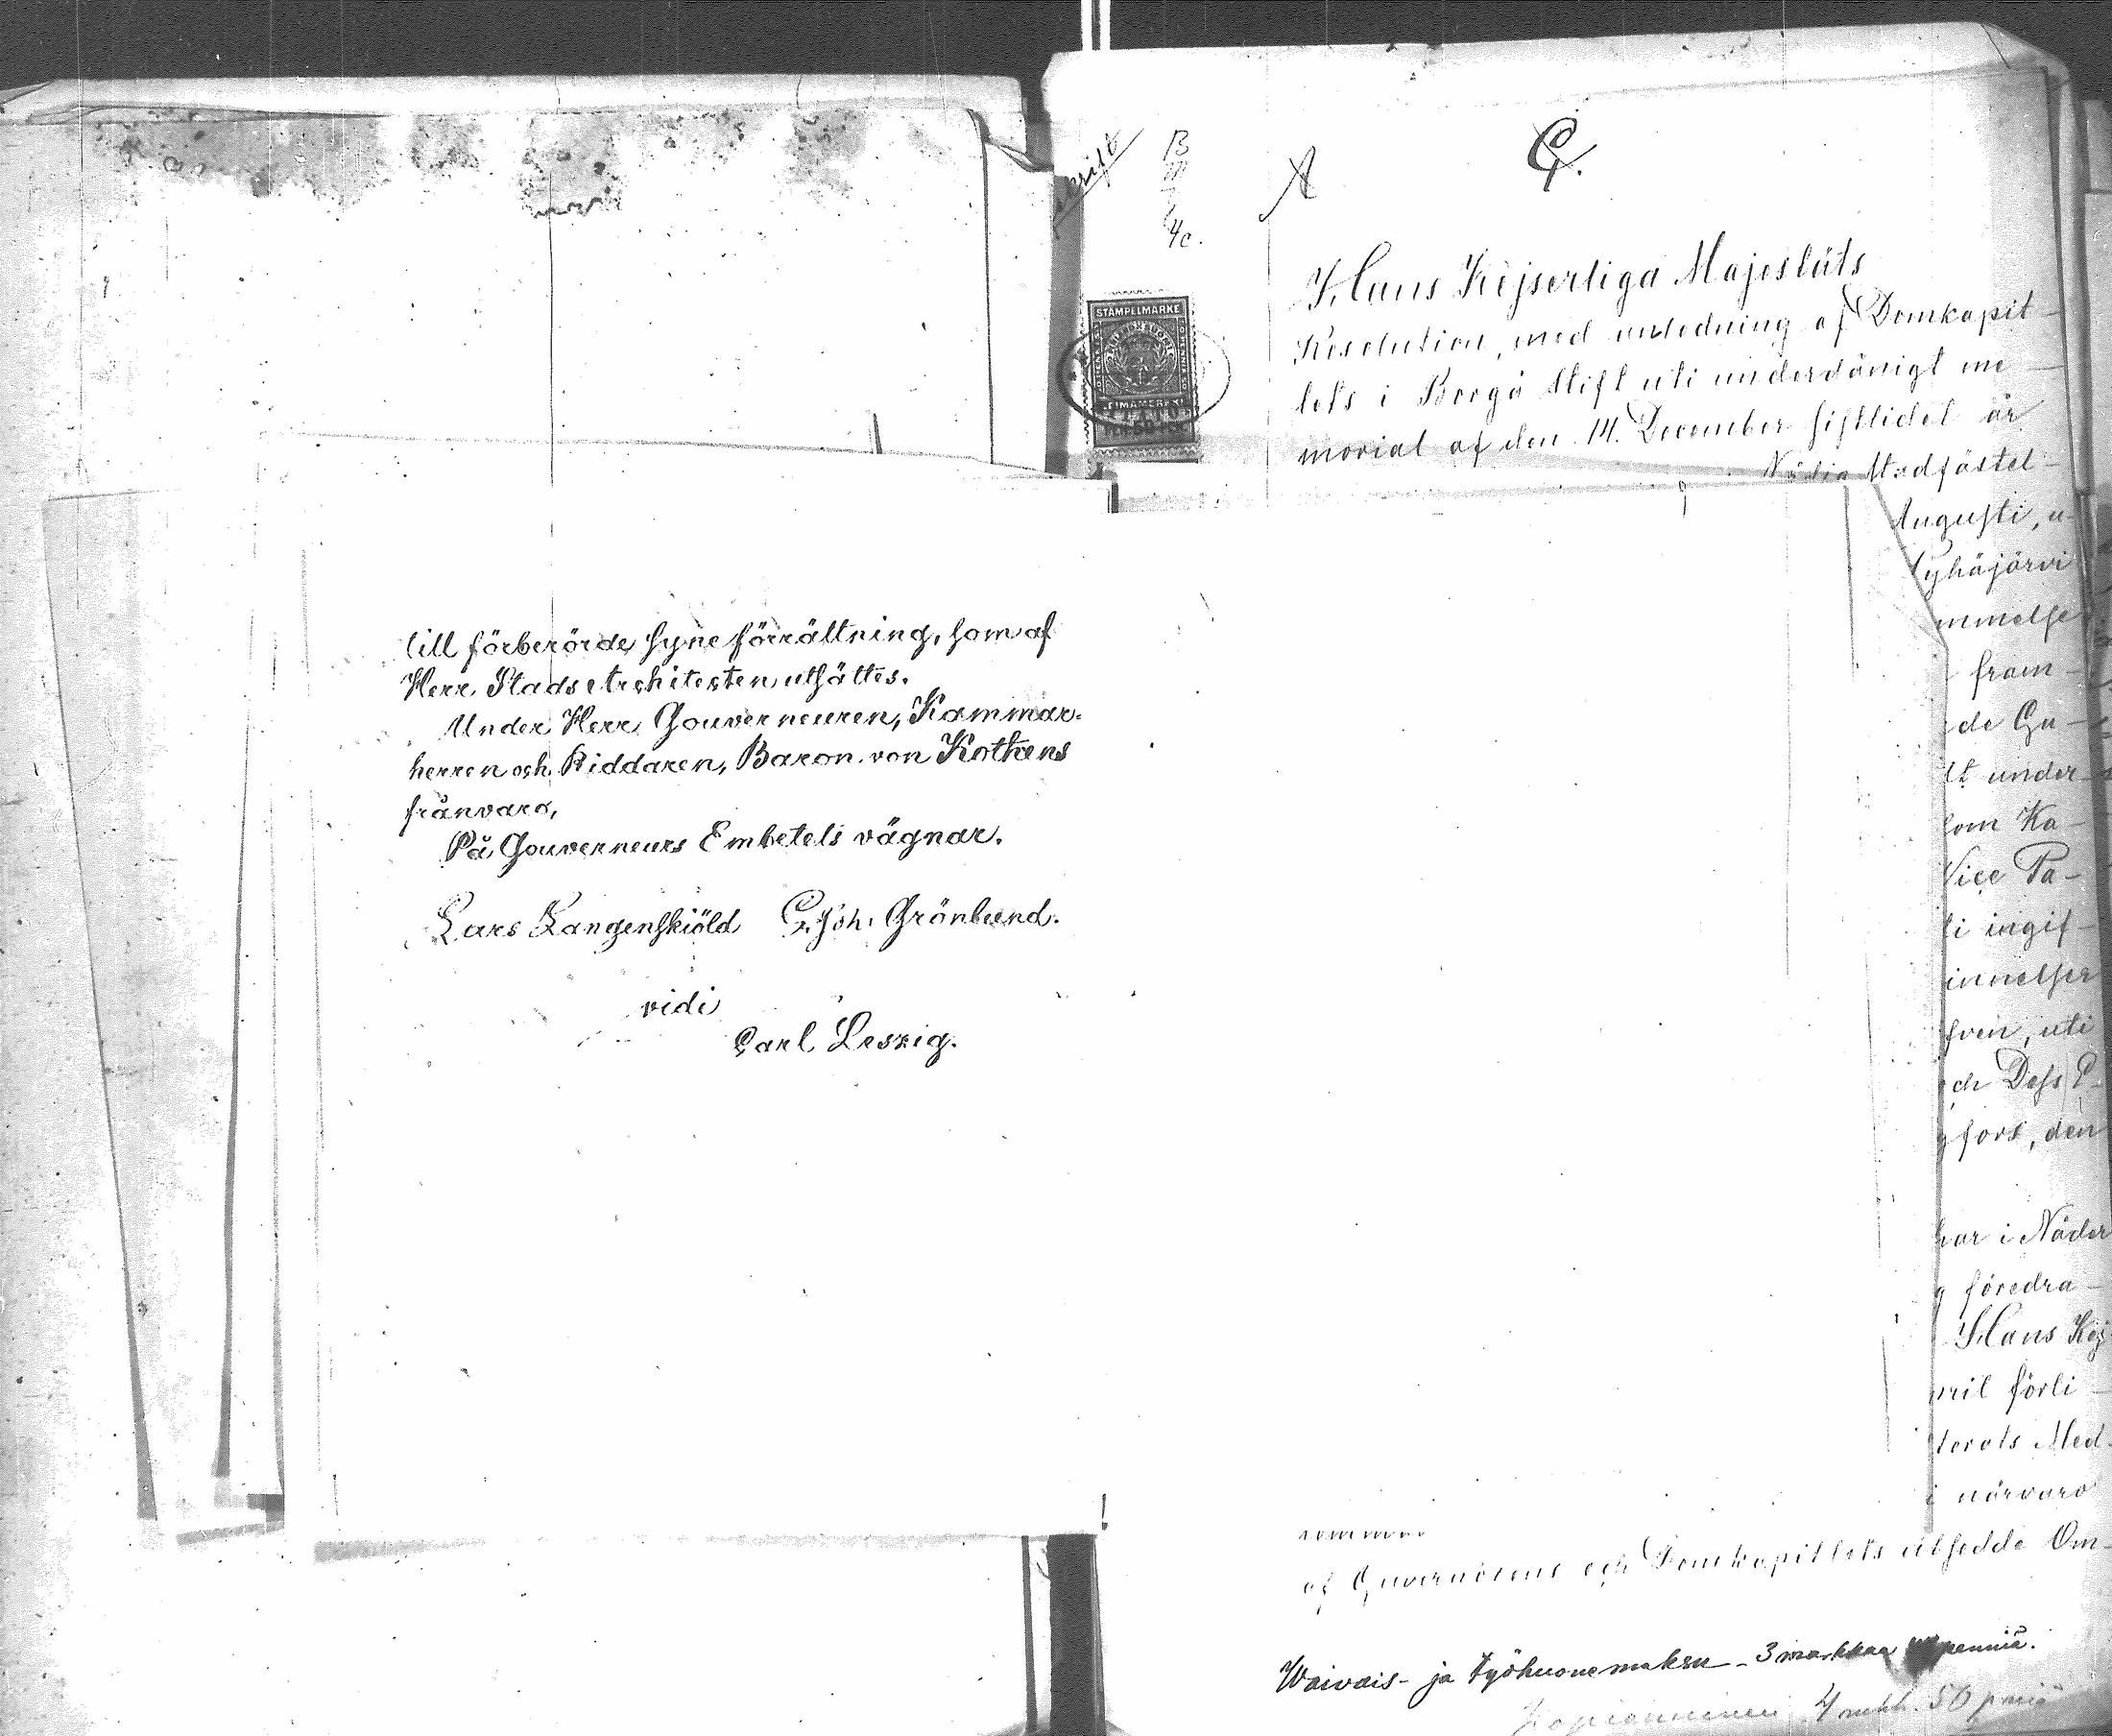 till förberörde Syneförrättning, som af
Herr Stads Architecten utsättes.
Under Herr Gouverneuren, Kammar-
herren och Riddaren, Baron von Kothens
frånvaro,
På Gouverneurs Embetets vägnar.
Lars Langenskiöld C. Joh. Grönlund.
vidi
Carl Leszig.
B
4c.
A
C.
STÄMPELMÄRKE
Hans Kejserliga Majestäts
Resolution, med anledning af Domkapit-
lets i Borgå Stift uti underdånigt me-
morial af den 14. December sistlidet år
Nådig Stadfästel-
Augusti, u-
yhäjärvi
mmelse
fram-
de Gu-
lt under-
som Ka-
Vice Pa-
ti ingif-
innelser
fven, uti
ch Dess E-
gfors, den
har i Nåder
g föredra-
Hans Kej-
pril förli-
terots Med-
i närvaro
af Guvernörens och Domkapitlets utsedde Om-
Waivais- ja Työhuonemaksu - 3 markkaa penniä.
4 mkk. 50 penniä